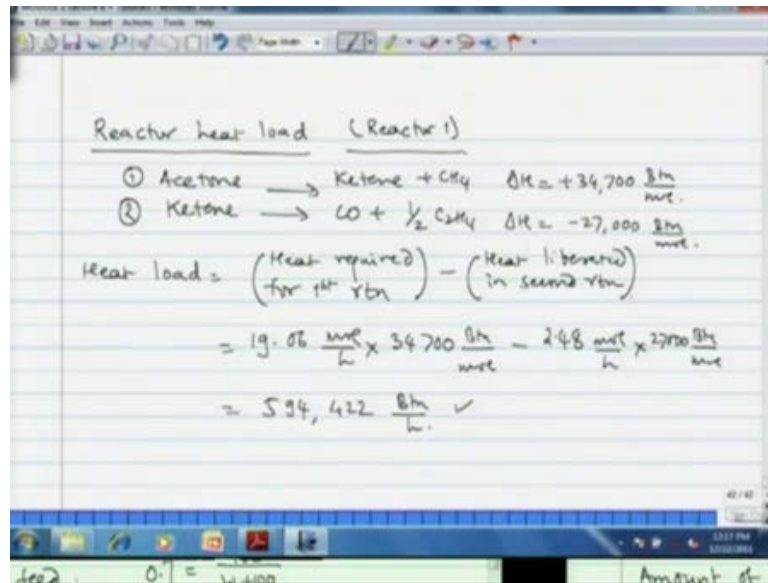 Edit View Insert Actions Tools Help
Page Width
Reactor heat load (Reactor 1)
① Acetone → Ketene + CH4 ΔH = +34,700 Btu/mol.
② Ketene → CO + 1/2 C2H4 ΔH = -27,000 Btu/mol.
Heat load = (Heat required for 1st rxn) - (Heat liberated in second rxn)
= 19.06 mol/h × 34700 Btu/mol - 2.48 mol/h × 27000 Btu/mol
= 594,422 Btu/h. ✓
42/42
12:17 PM
12/22/2011
feed 0.7 =
Amount of